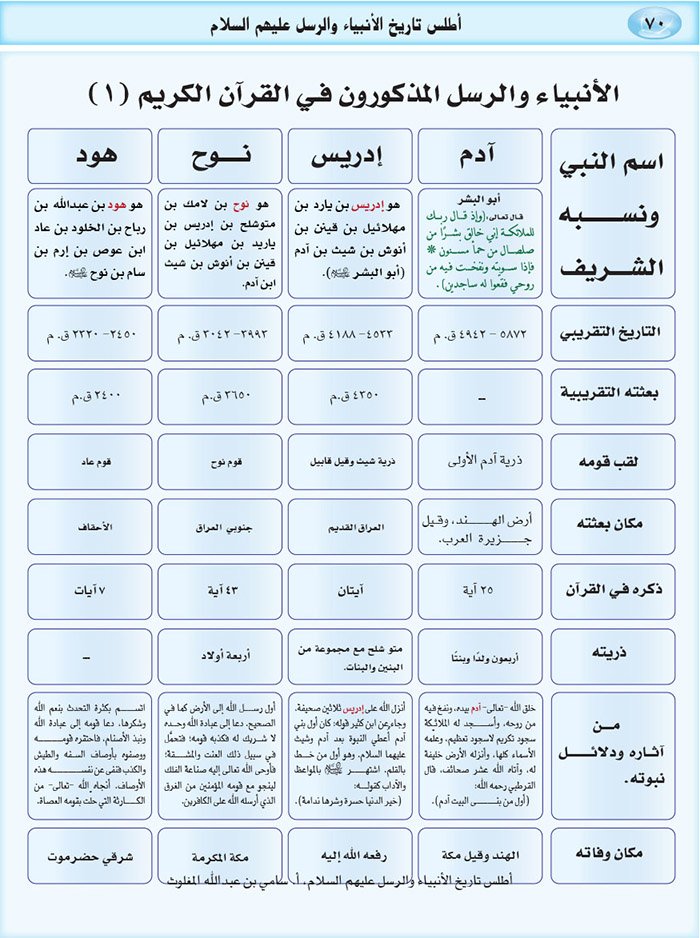 ٧٠
أطلس تاريخ الأنبياء والرسل عليهم السلام
الأنبياء والرسل المذكورون في القرآن الكريم (١)
اسم النبي
ونسبه
الشريف
آدم
إدريس
نوح
هود
أبو البشر
قال تعالى: (وإذ قال ربك
للملائكة إني خالق بشرًا من
صلصال من حمأ مسنون *
فإذا سويته ونفخت فيه من
روحي فقعوا له ساجدين).
هو إدريس بن يارد بن
مهلائيل بن قينن بن
أنوش بن شيث بن آدم
(أبو البشر ﷺ).
هو نوح بن لامك بن
متوشلح بن إدريس بن
ياريد بن مهلائيل بن
قينن بن أنوش بن شيث
ابن آدم.
هو هود بن عبدالله بن
رباح بن الخلود بن عاد
ابن عوص بن إرم بن
سام بن نوح ﷺ.
التاريخ التقريبي
٥٨٧٢ - ٤٩٤٢ ق. م
٤٥٣٣- ٤١٨٨ ق. م
٣٩٩٣- ٣٠٤٢ ق. م
٢٤٥٠- ٢٣٢٠ ق. م
بعثته التقريبية
–
٤٣٥٠ ق.م
٣٦٥٠ ق.م
٢٤٠٠ ق.م
لقب قومه
ذرية آدم الأولى
ذرية شيث وقيل قابيل
قوم نوح
قوم عاد
مكان بعثته
أرض الهند، وقيل
جزيرة العرب.
العراق القديم
جنوبي العراق
الأحقاف
ذكره في القرآن
٢٥ آية
آيتان
٤٣ آية
٧ آيات
ذريته
أربعون ولدًا وبنتًا
متو شلح مع مجموعة من
البنين والبنات.
أربعة أولاد
–
من
آثاره ودلائل
نبوته.
خلق الله -تعالى- آدم بيده، ونفخ فيه
من روحه، وأسجد له الملائكة
سجود تكريم لاسجود تعظيم، وعلمه
الأسماء كلها، وأنزله الأرض خليفة
له، وأتاه الله عشر صحائف، قال
القرطبي رحمه الله:
(أول من بنى البيت آدم).
أنزل الله على إدريس ثلاثين صحيفة،
وجاء عن ابن كثير قوله: كان أول بني
آدم أعطي النبوة بعد آدم وشيث
عليهما السلام، وهو أول من خط
بالقلم، اشتهر ﷺ بالمواعظ
والآداب كقوله:
(خير الدنيا حسرة وشرها ندامة).
أول رسل الله إلى الأرض كما في
الصحيح، دعا إلى عبادة الله وحده
لا شريك له فكذبه قومه؛ فتحمَّل
في سبيل ذلك العنت والمشقة؛
فأوحى الله تعالى إليه صناعة الفلك
لينجو مع قومه المؤمنين من الغرق
الذي أرسله الله على الكافرين.
اتسم بكثرة التحدث بنعم الله
وشكرها، دعا قومه إلى عبادة الله
ونبذ الأصنام، فاحتقره قومه
ووصفوه بأوصاف السفه والطيش
والكذب فنفى عن نفسه هذه
الأوصاف. أنجاه الله -تعالى- من
الكارثة التي حلت بقومه العصاة.
مكان وفاته
الهند وقيل مكة
رفعه الله إليه
مكة المكرمة
شرقي حضرموت
أطلس تاريخ الأنبياء والرسل عليهم السلام، أ. سامي بن عبدالله المغلوث